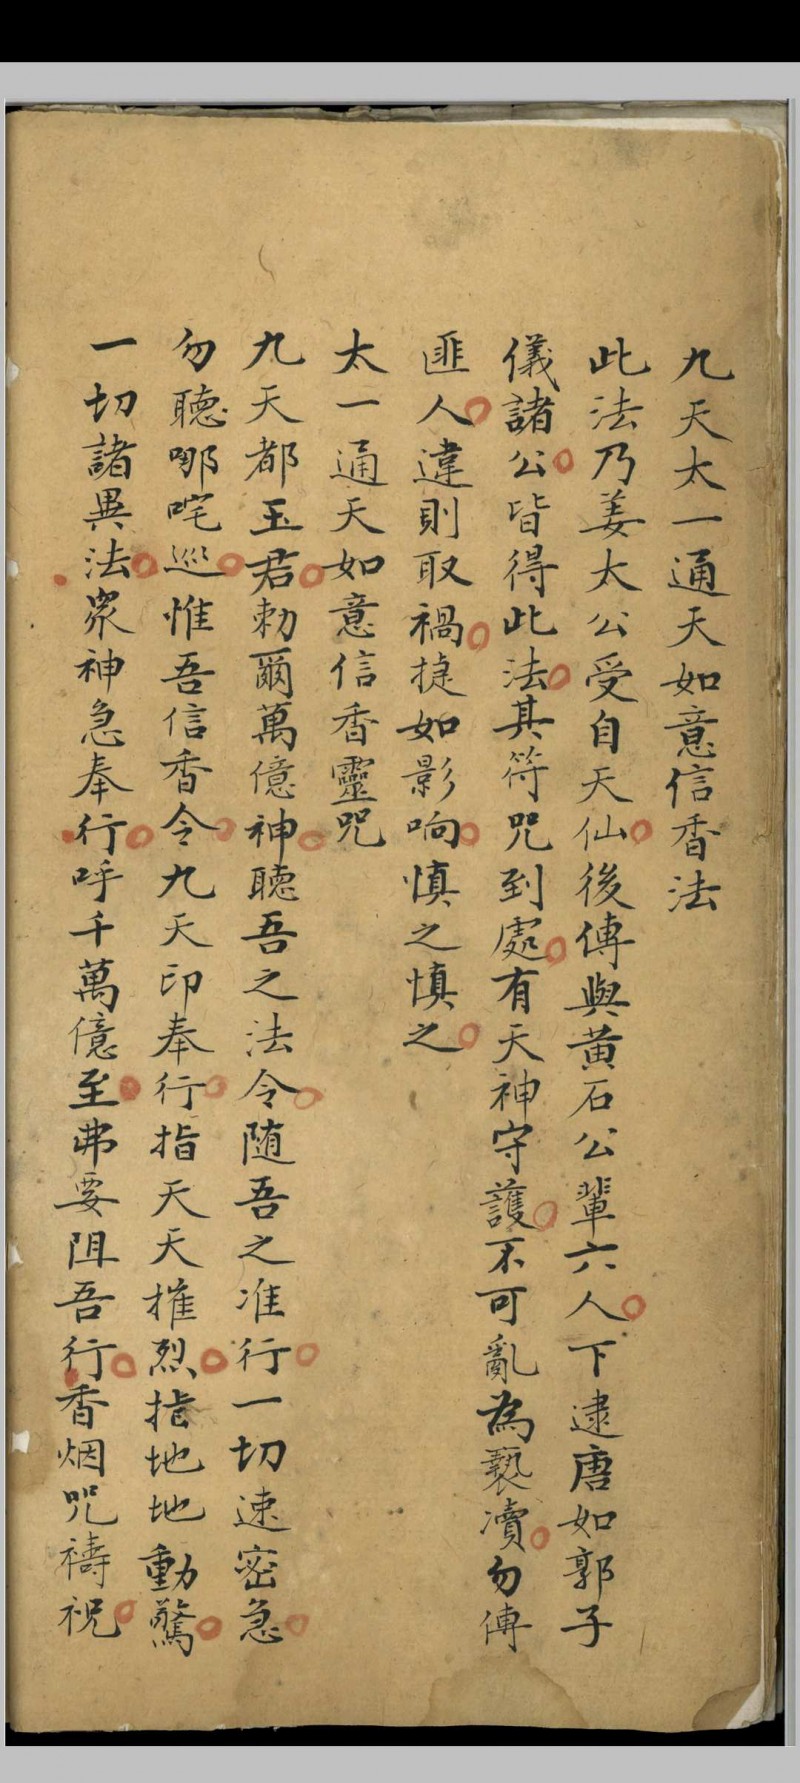 九天太一通天如意信香法
此法乃姜太公受自天仙後傳與黄石公輩六人下逮唐如郭子
儀諸公皆得此法其符咒到處有天神守護不可亂為褻瀆勿傳
匪人違則取禍捷如影响慎之慎之
太一通天如意信香靈咒
九天都玉君勅爾萬億神聽吾之法令随吾之准行一切速密急
勿聽哪吒巡惟吾信香令九天印奉行指天天摧烈指地地動驚
一切諸異法衆神急奉行呼千萬億至弗要阻吾行香烟咒禱祝